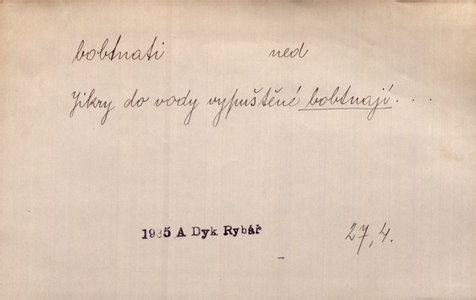 bobtnati ned
Jikry do vody vypuštěné bobtnají . . .
1935 A Dyk Rybář 27,4.